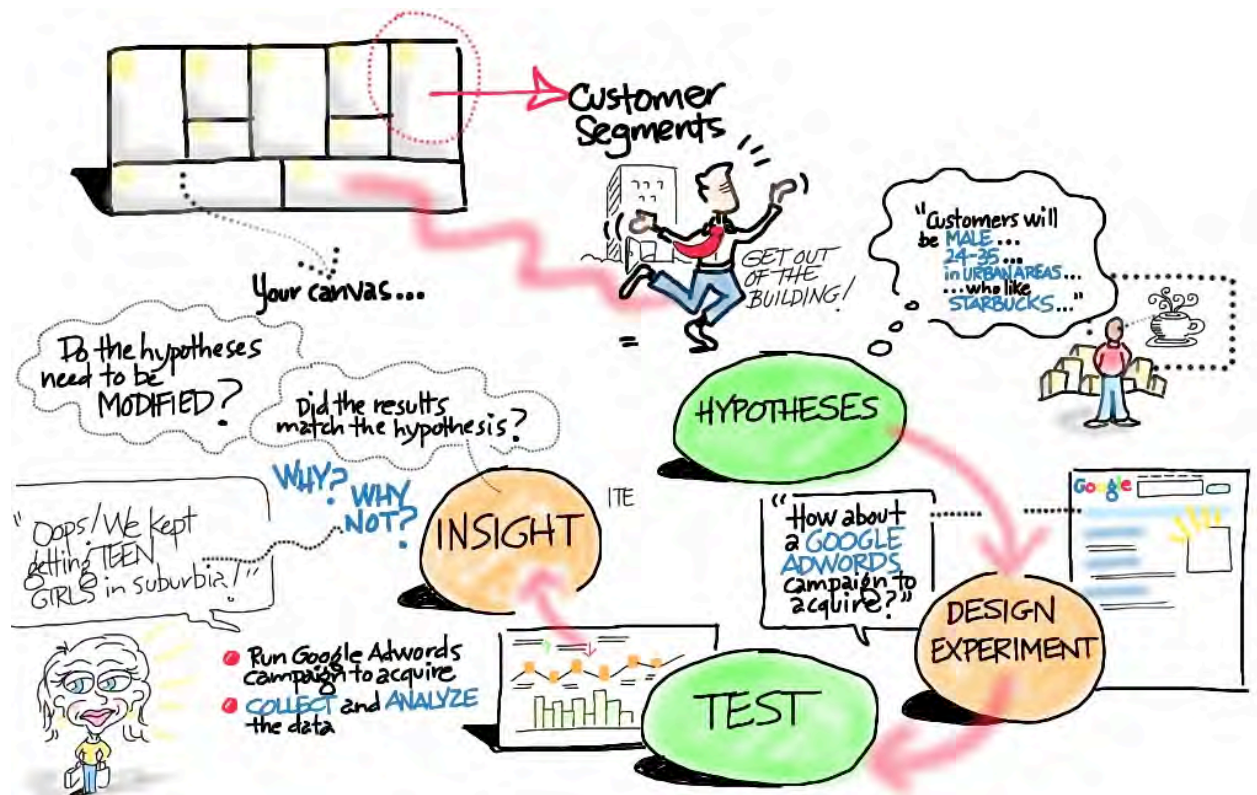 Customer
Segments
GET OUT
OF THE
BUILDING!
Your canvas...
"Customers will
be MALE...
24-35...
in URBAN AREAS...
...who like
STARBUCKS..."
HYPOTHESES
Do the hypotheses
need to be
MODIFIED?
Did the results
match the hypothesis?
WHY?
WHY
NOT?
INSIGHT
ITE
"Oops! We kept
getting TEEN
GIRLS in suburbia!"
"How about
a GOOGLE
ADWORDS
campaign to
acquire?"
Google
DESIGN
EXPERIMENT
TEST
Run Google Adwords
campaign to acquire
COLLECT and ANALYZE
the data